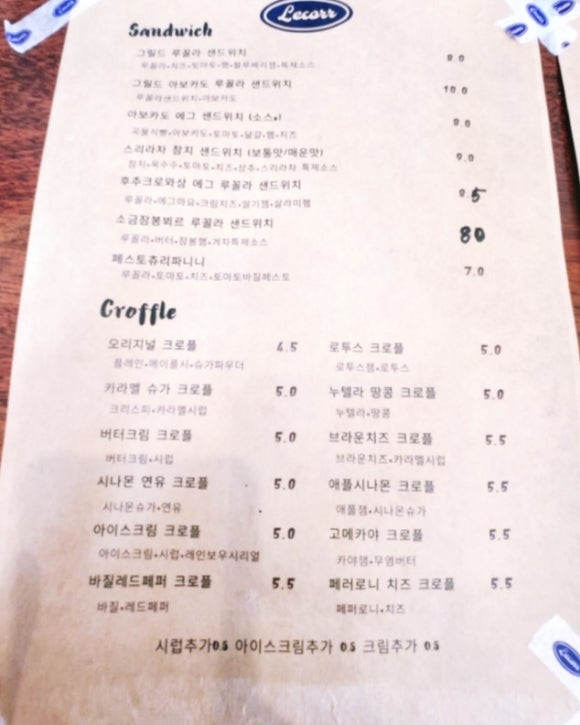 Lecorr
Sandwich
그릴드 루꼴라 샌드위치 8.0
루꼴라•치즈•토마토•햄•블루베리잼•특제소스
그릴드 아보카도 루꼴라 샌드위치 10.0
루꼴라샌드위치•아보카도
아보카도 에그 샌드위치 (소스x) 8.0
곡물식빵•아보카도•토마토•달걀•햄•치즈
스리라차 참치 샌드위치 (보통맛/매운맛) 9.0
참치•옥수수•토마토•치즈•상추•스리라차 특제소스
후추크로와상 에그 루꼴라 샌드위치 8.5
루꼴라•에그마요•크림치즈•딸기잼•살라미햄
소금잠봉뵈르 루꼴라 샌드위치 80
루꼴라•버터•잠봉햄•겨자특제소스
페스토츄리파니니 7.0
루꼴라•토마토•치즈•토마토바질페스토
Croffle
오리지널 크로플 4.5
플레인•메이플시•슈가파우더
카라멜 슈가 크로플 5.0
크리스피•카라멜시럽
버터크림 크로플 5.0
버터크림•시럽
시나몬 연유 크로플 5.0
시나몬슈가•연유
아이스크림 크로플 5.0
아이스크림•시럽•레인보우시리얼
바질레드페퍼 크로플 5.5
바질•레드페퍼
로투스 크로플 5.0
로투스잼•로투스
누텔라 땅콩 크로플 5.0
누텔라•땅콩
브라운치즈 크로플 5.5
브라운치즈•카라멜시럽
애플시나몬 크로플 5.5
애플잼•시나몬슈가
고메카야 크로플 5.5
카야잼•무염버터
페러로니 치즈 크로플 5.5
페퍼로니•치즈
시럽추가 0.5 아이스크림추가 0.5 크림추가 0.5
Lecorr